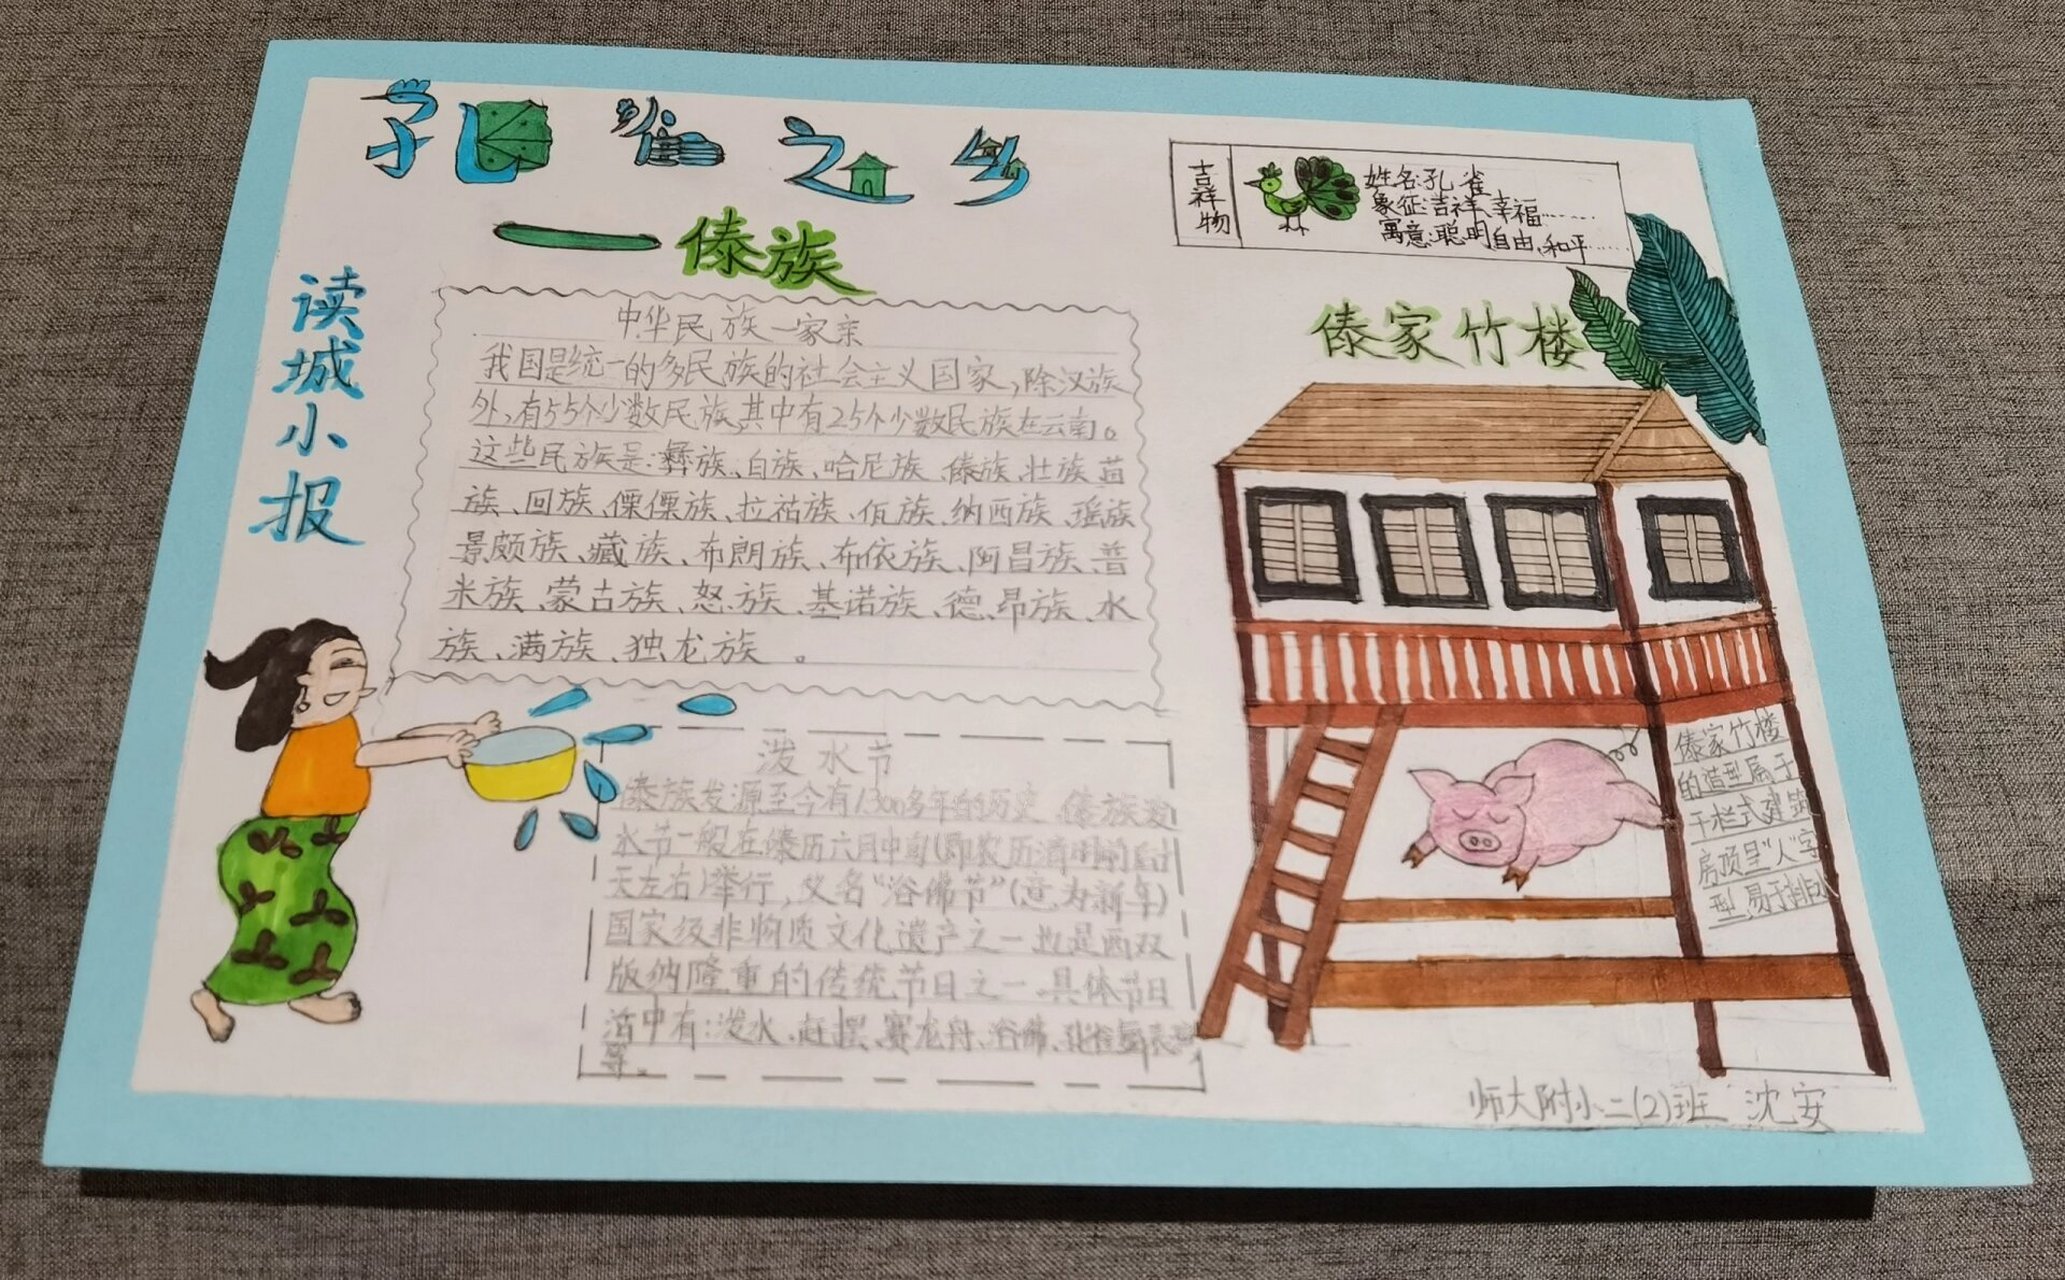 孔雀之乡
——傣族
读城小报
吉祥物
姓名:孔雀
象征:吉祥、幸福……
寓意:聪明自由、和平……
中华民族一家亲
我国是统一的多民族的社会主义国家,除汉族
外,有55个少数民族,其中有25个少数民族在云南。
这些民族是:彝族、白族、哈尼族、傣族、壮族、苗
族、回族、傈僳族、拉祜族、佤族、纳西族、瑶族
景颇族、藏族、布朗族、布依族、阿昌族、普
米族、蒙古族、怒族、基诺族、德昂族、水
族、满族、独龙族。
泼水节
傣族发源至今有1300多年的历史,傣族泼
水节一般在傣历六月中旬(即农历清明前后十
天左右)举行,又名“浴佛节”(意为新年)
国家级非物质文化遗产之一也是西双
版纳隆重的传统节日之一,具体节日
活中有:泼水、赶摆、赛龙舟、浴佛、孔雀舞表演
等。
傣家竹楼
傣家竹楼
的造型属于
干栏式建筑
房顶呈“人”字
型,易于排水
师大附小二(2)班 沈安